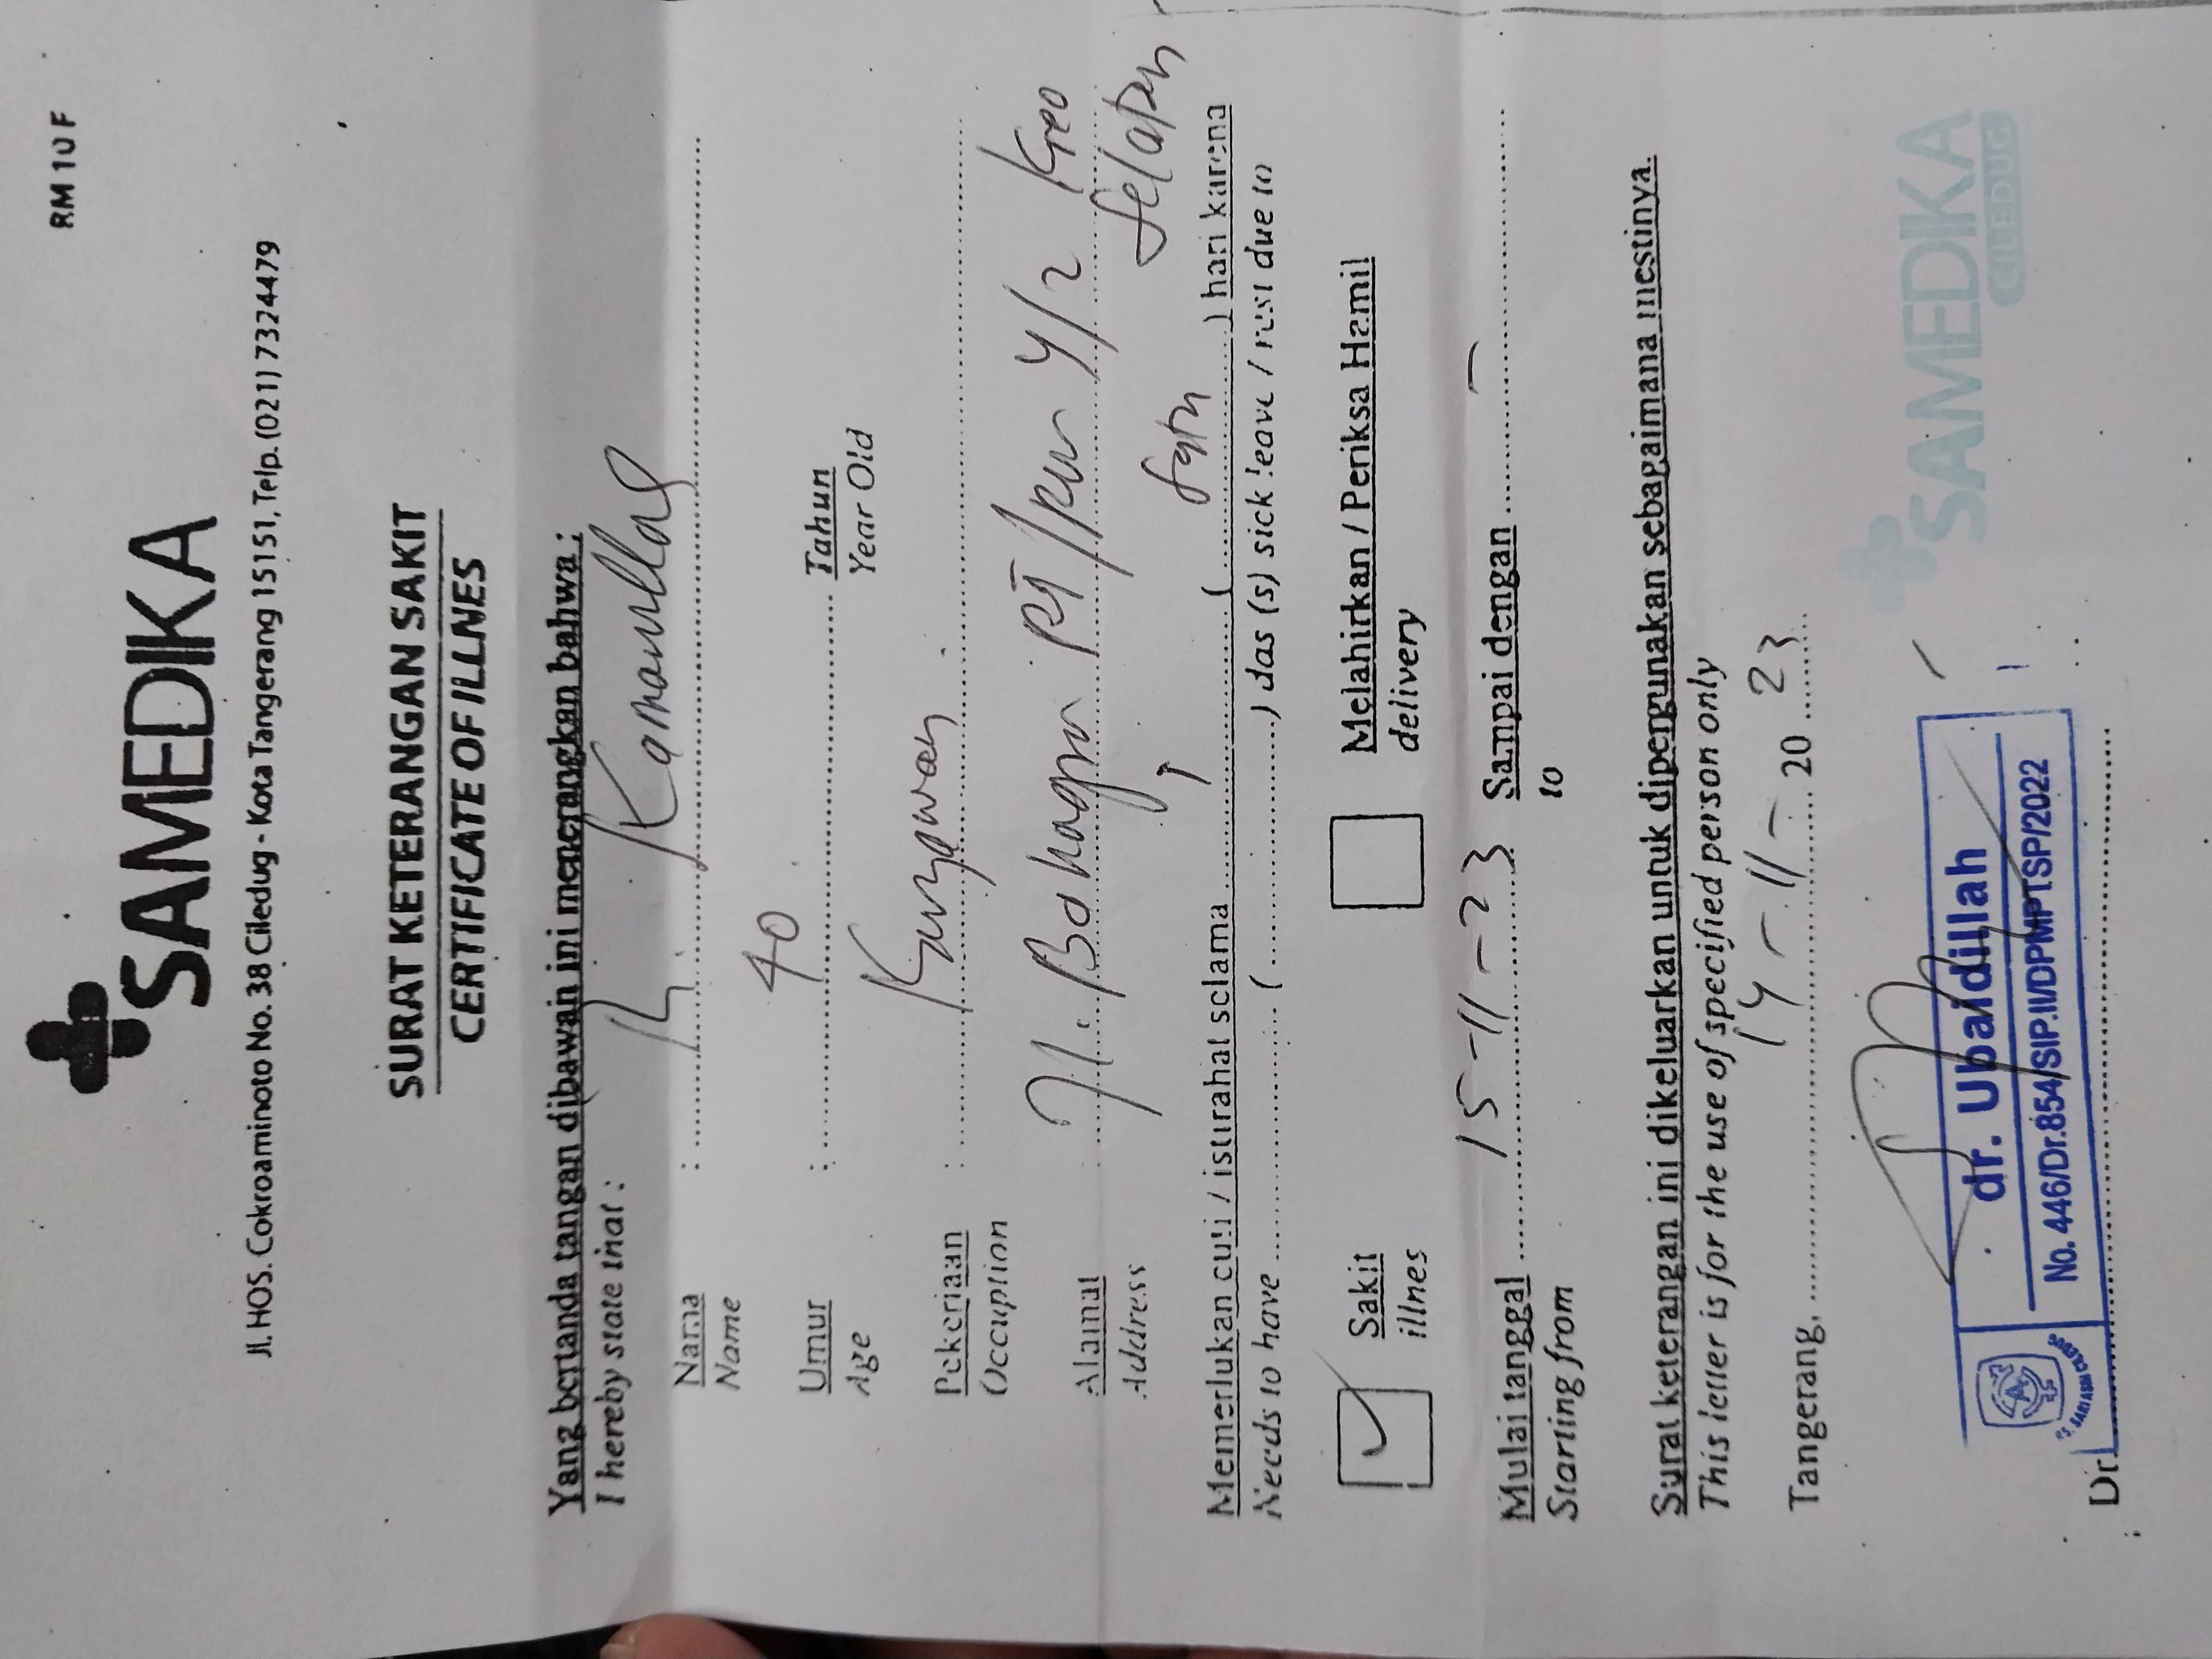 RM 10 F
SAMEDIKA
Jl. HOS. Cokroaminoto No. 38 Ciledug - Kota Tangerang 15151, Telp. (021) 7324479
SURAT KETERANGAN SAKIT
CERTIFICATE OF ILLNES
Yang bertanda tangan dibawah ini menerangkan bahwa :
I hereby state that :
Nama :
Name
Umur : 40 Tahun
Age Year Old
Pekerjaan : Karyawan
Occuption
Alamat : Jl. RT/RW 4/2 Kreo
Selatan
Address
Memerlukan cuti / istirahat selama 1 ( Satu ) hari karena
Needs to have ( ) das (s) sick leave / rest due to
Sakit Melahirkan / Periksa Hamil
illnes delivery
Mulai tanggal 15-11-23 Sampai dengan -
Starting from to
Surat keterangan ini dikeluarkan untuk dipergunakan sebagaimana mestinya.
This letter is for the use of specified person only
Tangerang, 14-11- 20 23
SAMEDIKA
CILEDUG
dr. Ubaidillah
No. 446/Dr.854/SIP.II/DPMPTSP/2022
RS. SARI ASIH CILEDUG
Dr.